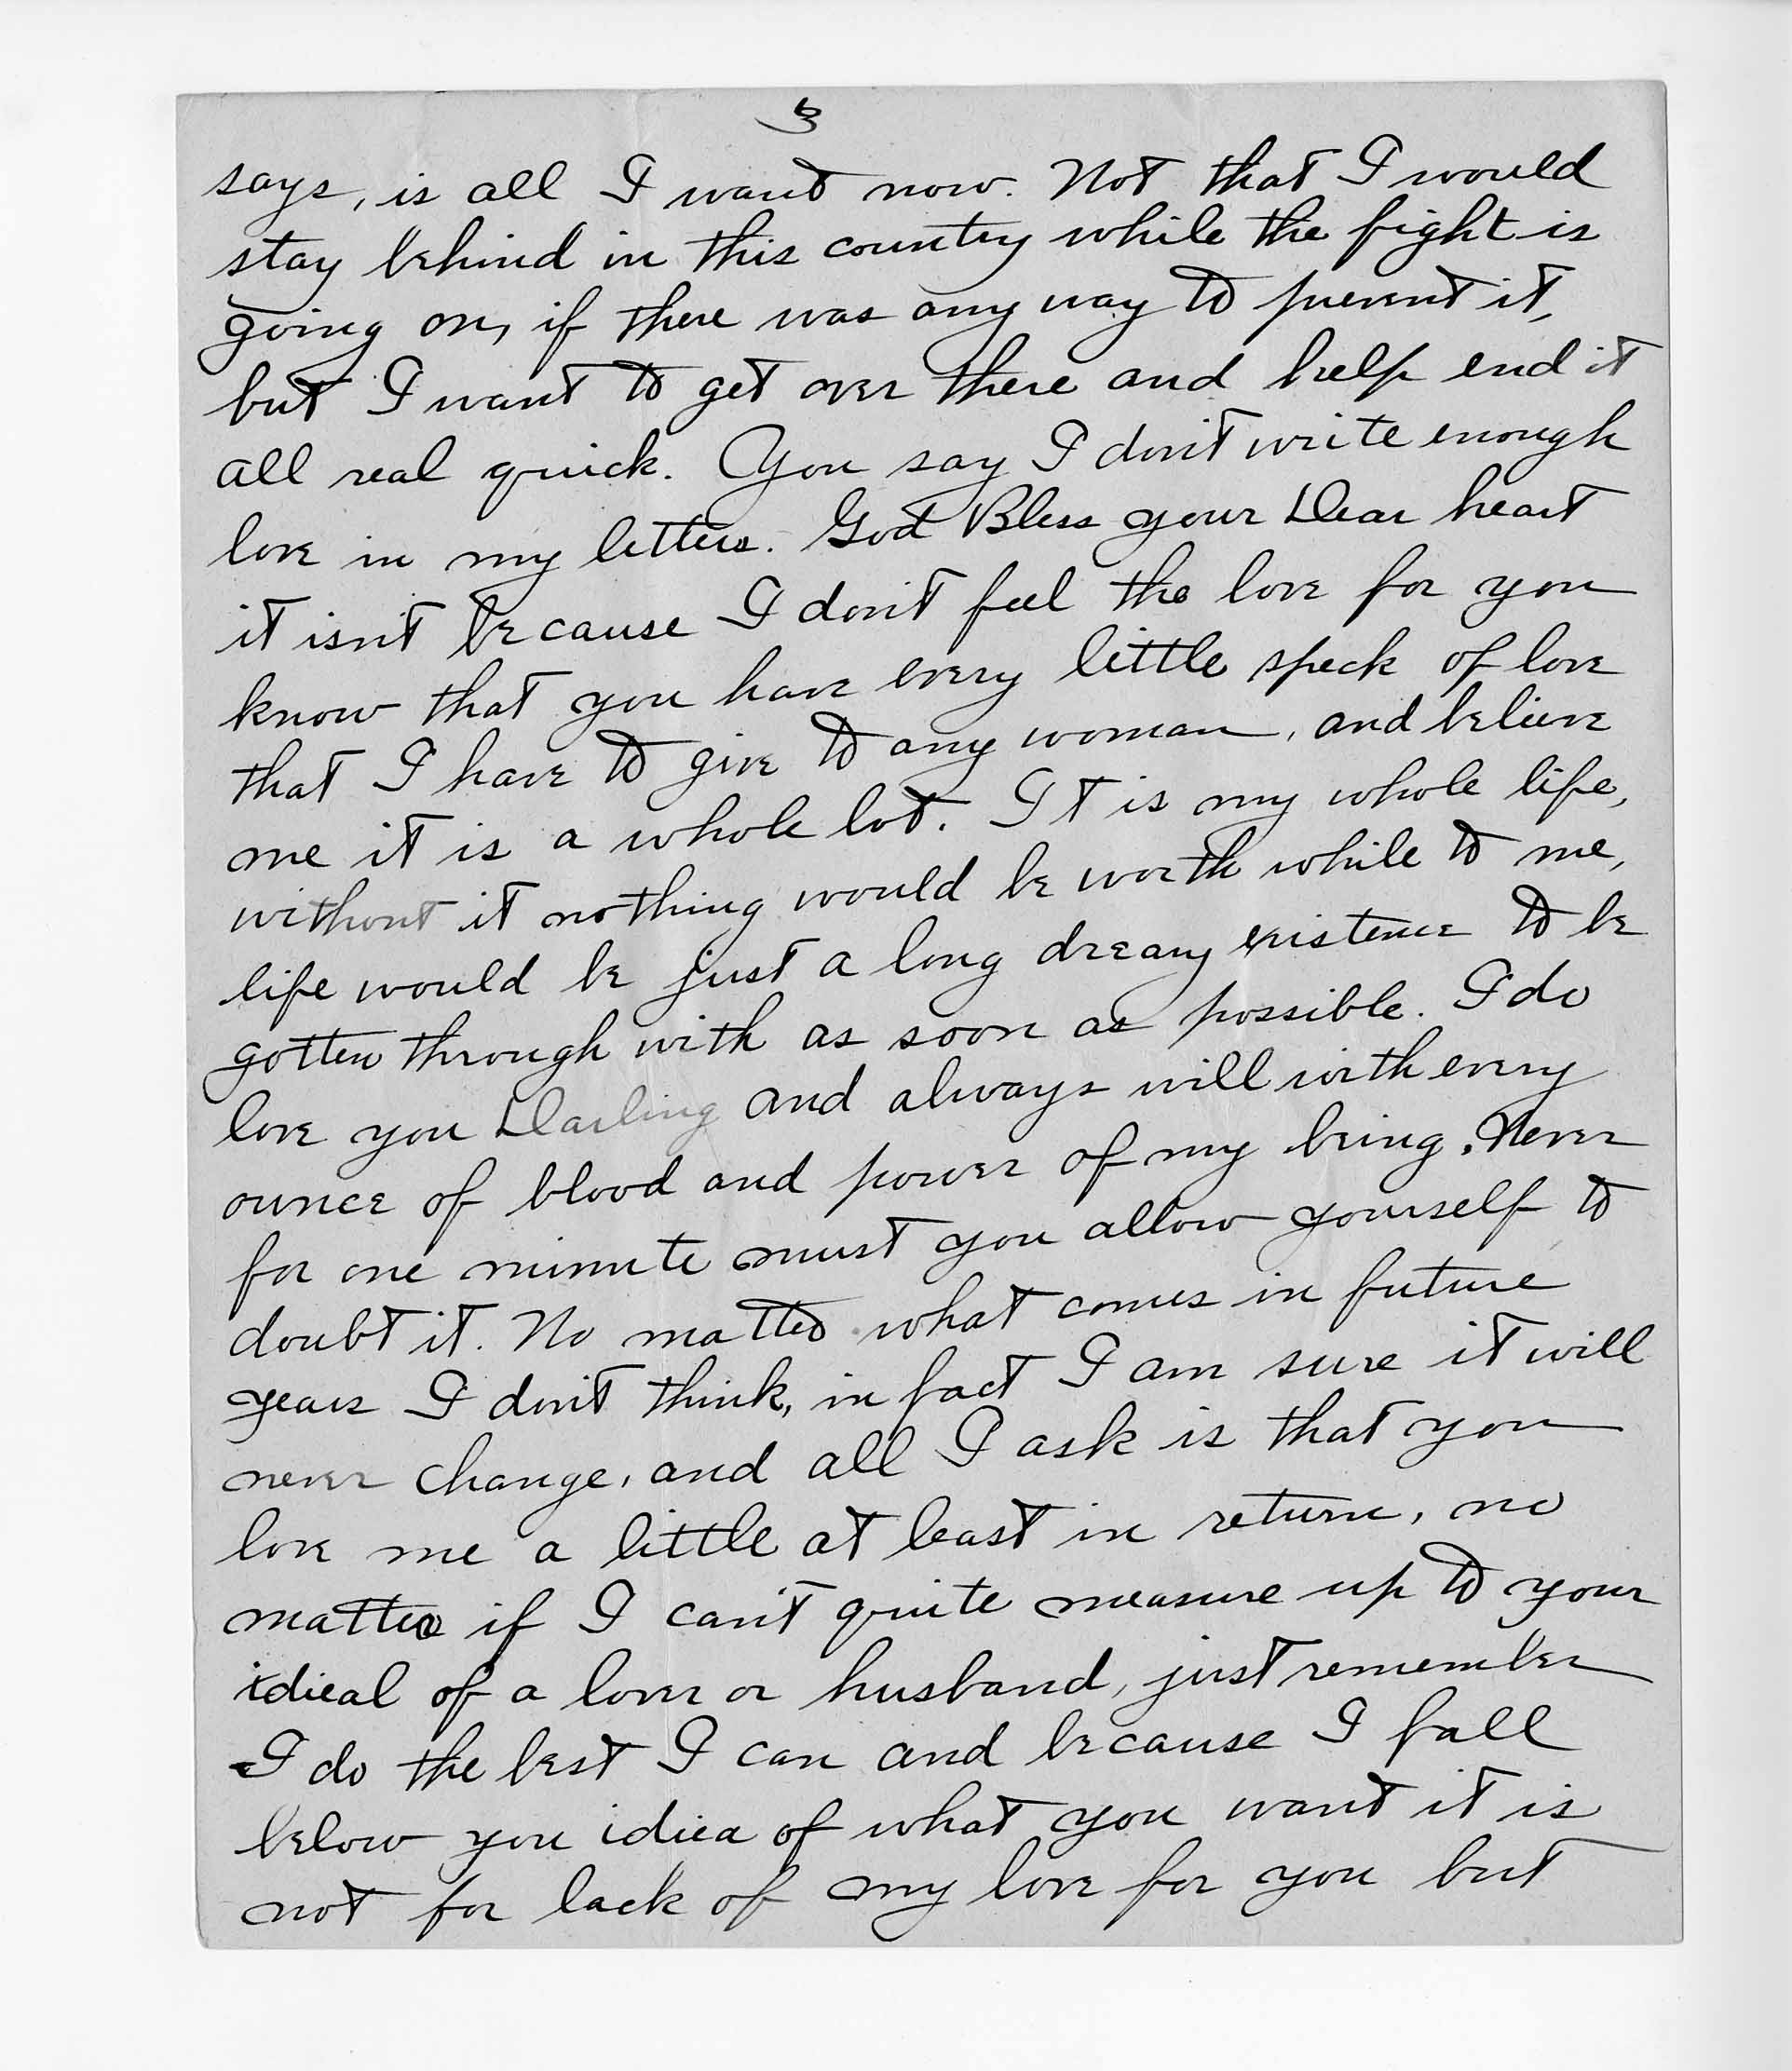 3
says, is all I want now. Not that I would
stay behind in this country while the fight is
going on, if there was any way to prevent it,
but I want to get over there and help end it
all real quick. You say I don't write enough
love in my letters. God Bless your Dear heart
it isn't because I don't feel the love for you
know that you have every little speck of love
that I have to give to any woman, and believe
me it is a whole lot. It is my whole life,
without it nothing would be worth while to me,
life would be just a long dreary existence to be
gotten through with as soon as possible. I do
love you Darling and always will with every
ounce of blood and power of my being. Never
for one minute must you allow yourself to
doubt it. No matter what comes in future
years I don't think, in fact I am sure it will
never change, and all I ask is that you
love me a little at least in return, no
matter if I can't quite measure up to your
idieal of a lover or husband, just remember
I do the best I can and because I fall
below you idiea of what you want it is
not for lack of my love for you but